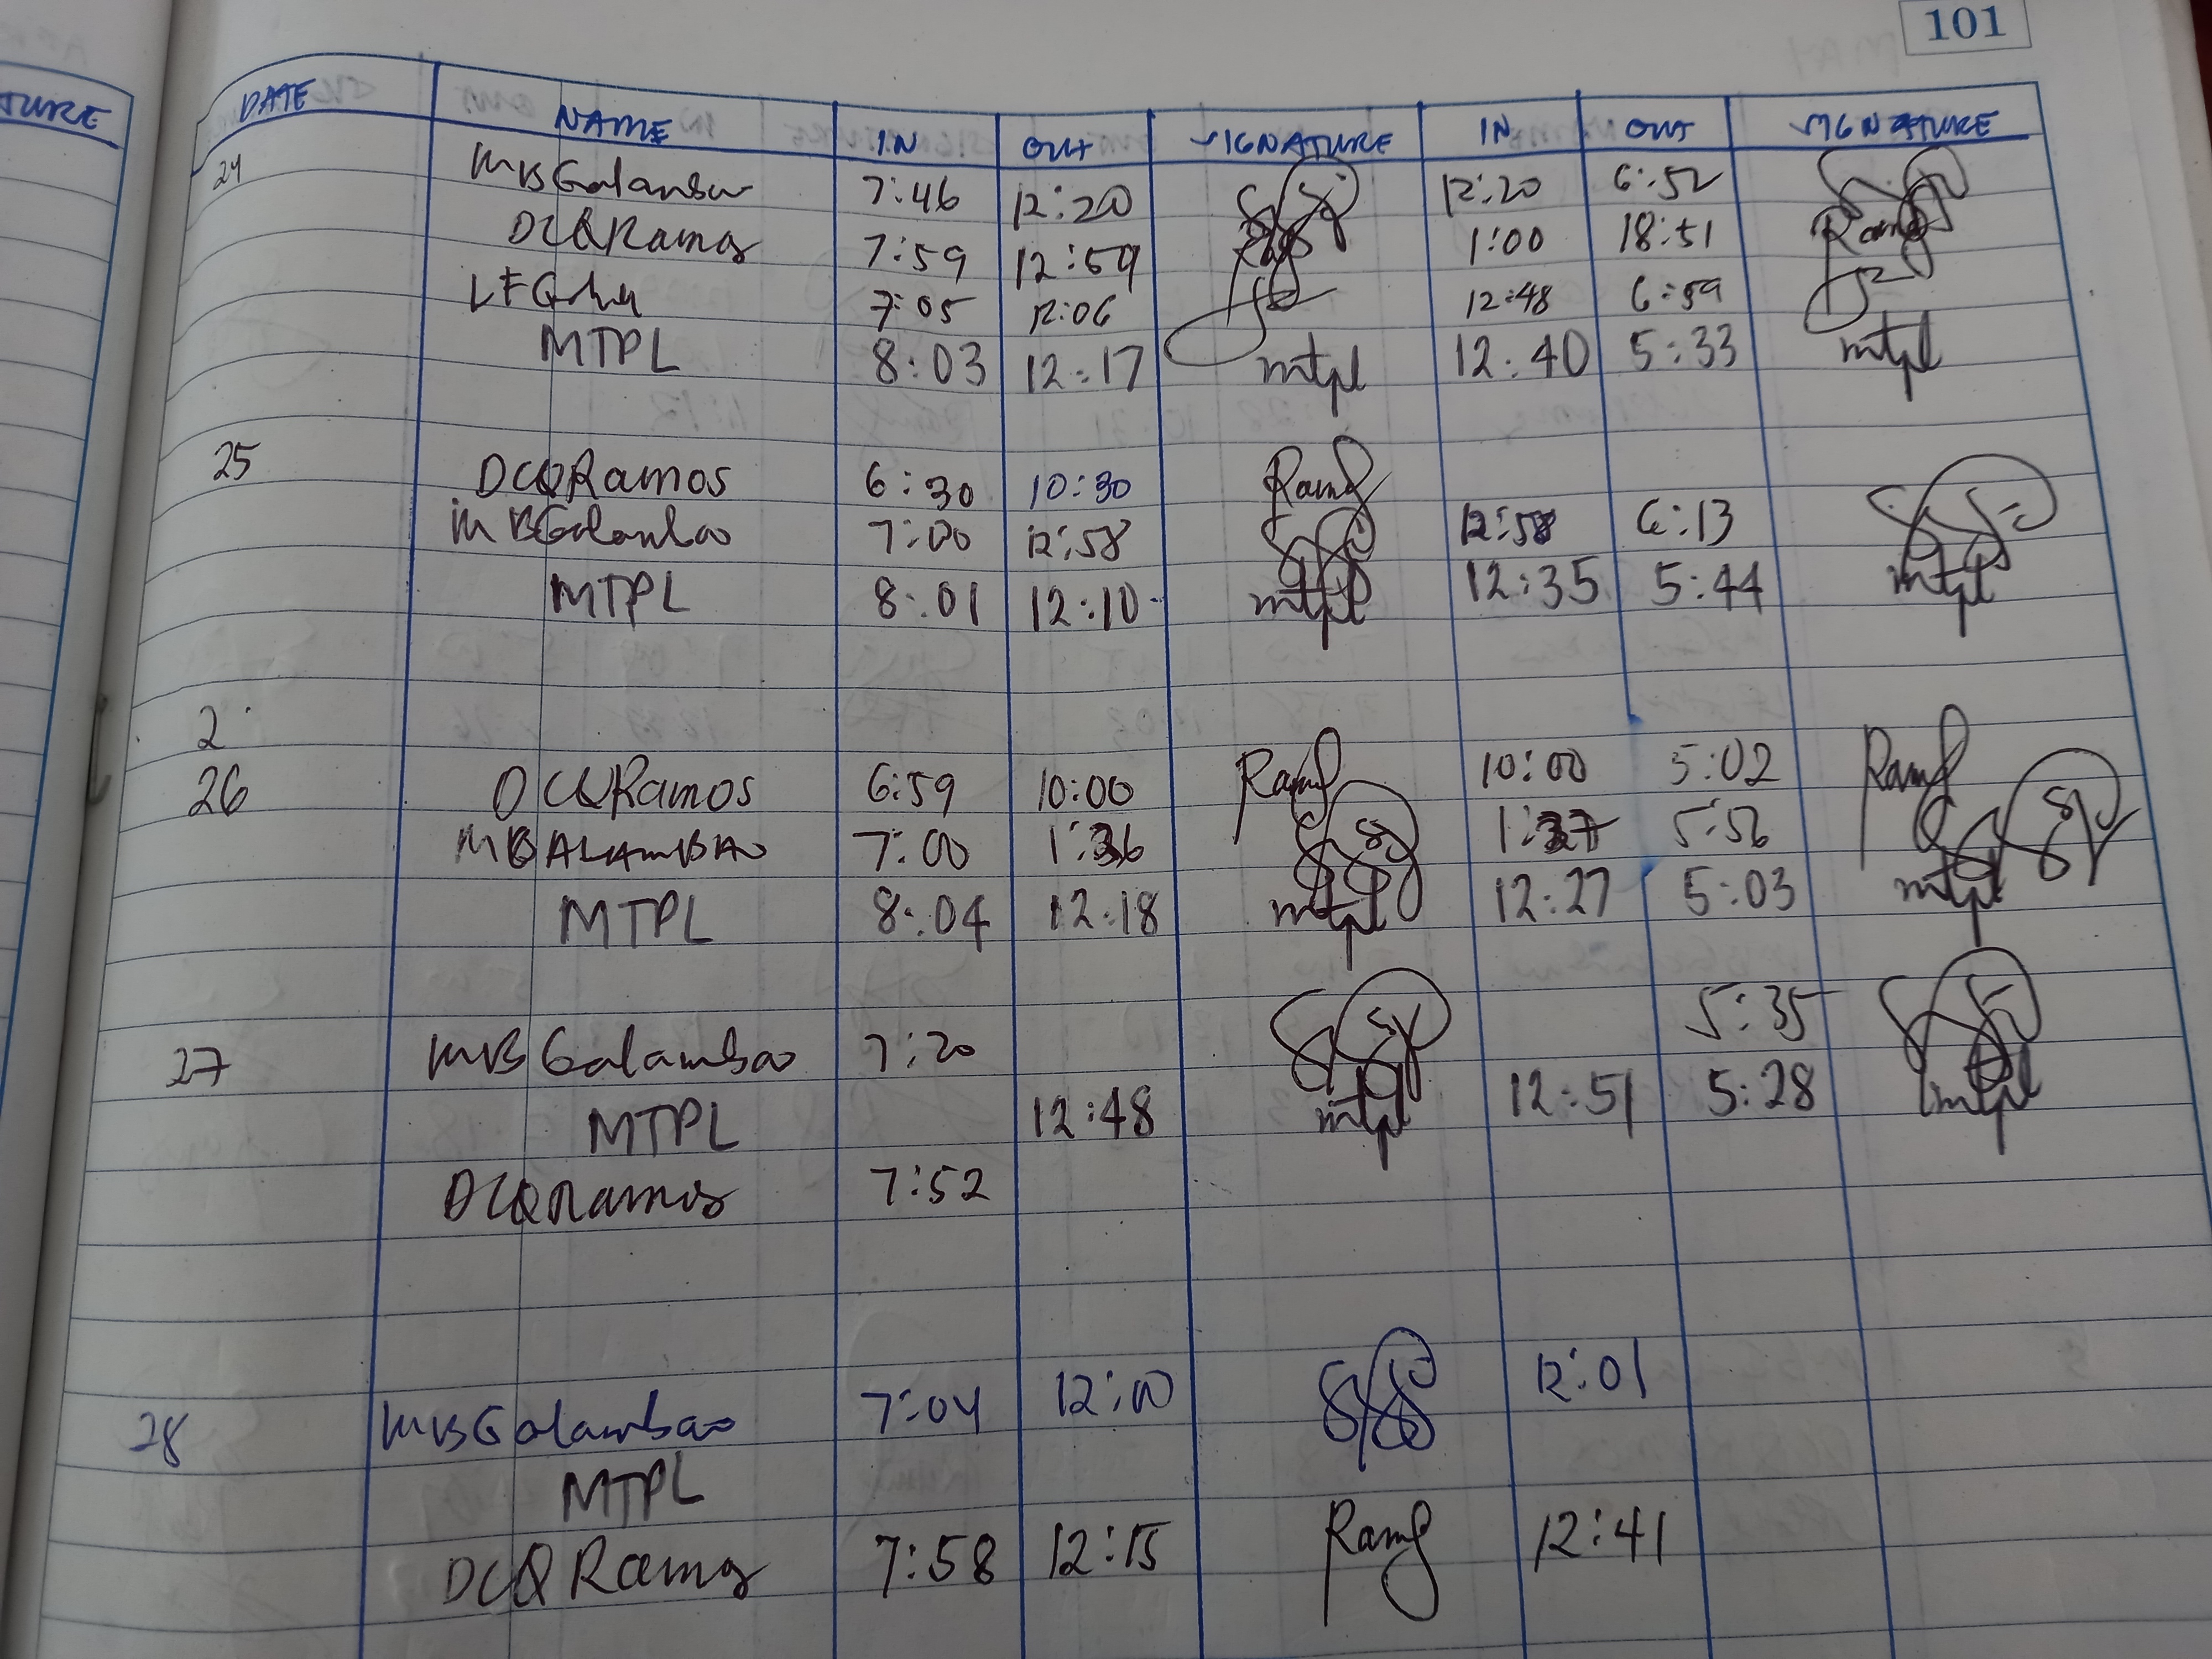 101
TURE
DATE NAME IN OUT SIGNATURE IN OUT SIGNATURE
24 MBGalambao 7:46 12:20 12:20 6:52
DCQRamos 7:59 12:59 1:00 18:51
7:05 12:06 12:48 6:59
MTPL 8:03 12:17 mtpl 12:40 5:33 mtpl
25 DCQRamos 6:30 10:30 Ramos
MBGalambao 7:00 12:58 12:58 6:13
MTPL 8:01 12:10 mtpl 12:35 5:44 mtpl
2
26 DCQRamos 6:59 10:00 Ramos 10:00 5:02 Ramos
MBGALAMBAO 7:00 1:36 1:37 5:56
MTPL 8:04 12:18 mtpl 12:27 5:03 mtpl
27 MBGalambao 7:20 5:35
MTPL 12:48 mtpl 12:51 5:28 mtpl
DCQRamos 7:52
28 MBGalambao 7:04 12:00 12:01
MTPL
DCQRamos 7:58 12:15 Ramos 12:41